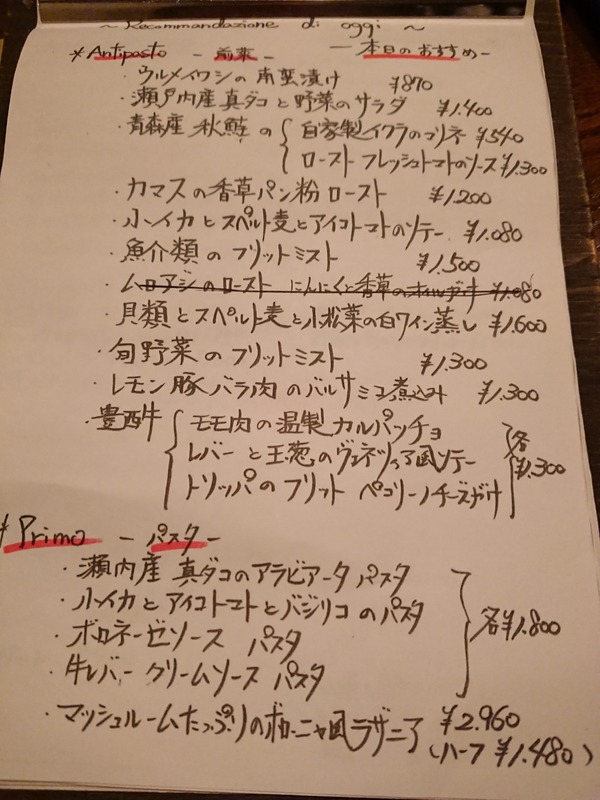 ~ Recommandazione di oggi ~
* Antipasto - 前菜 - - 本日のおすすめ -
・ウルメイワシの南蛮漬け ¥870
・瀬戸内産真ダコと野菜のサラダ ¥1.400
・青森産 秋鮭の { 自家製イクラのブリネ ¥540
ロースト フレッシュトマトのソース ¥1.300
・カマスの香草パン粉ロースト ¥1.200
・小ヤイカとスペルト麦とアイコトマトのソテー ¥1.080
・魚介類のフリットミスト ¥1.500
・ムロアジのロースト にんにくと香草の ¥1.080
・貝類とスペルト麦と小松菜の白ワイン蒸し ¥1.600
・旬野菜のフリットミスト ¥1.300
・レモン豚バラ肉のバルサミコ煮込み ¥1.300
・豊西牛 { モモ肉の温製カルパッチョ
レバーと玉葱のヴェネツィア風ソテー } 各¥1.300
トリッパのフリット ペコリーノチーズがけ
* Primo - パスタ -
・瀬内産 真ダコのアラビアータ パスタ
・小ヤイカとアイコトマトとバジリコのパスタ
・ボロネーゼソース パスタ } 各¥1.800
・牛レバー クリームソース パスタ
・マッシュルームたっぷりのボローニャ風ラザニア ¥2.960
(ハーフ ¥1.480)